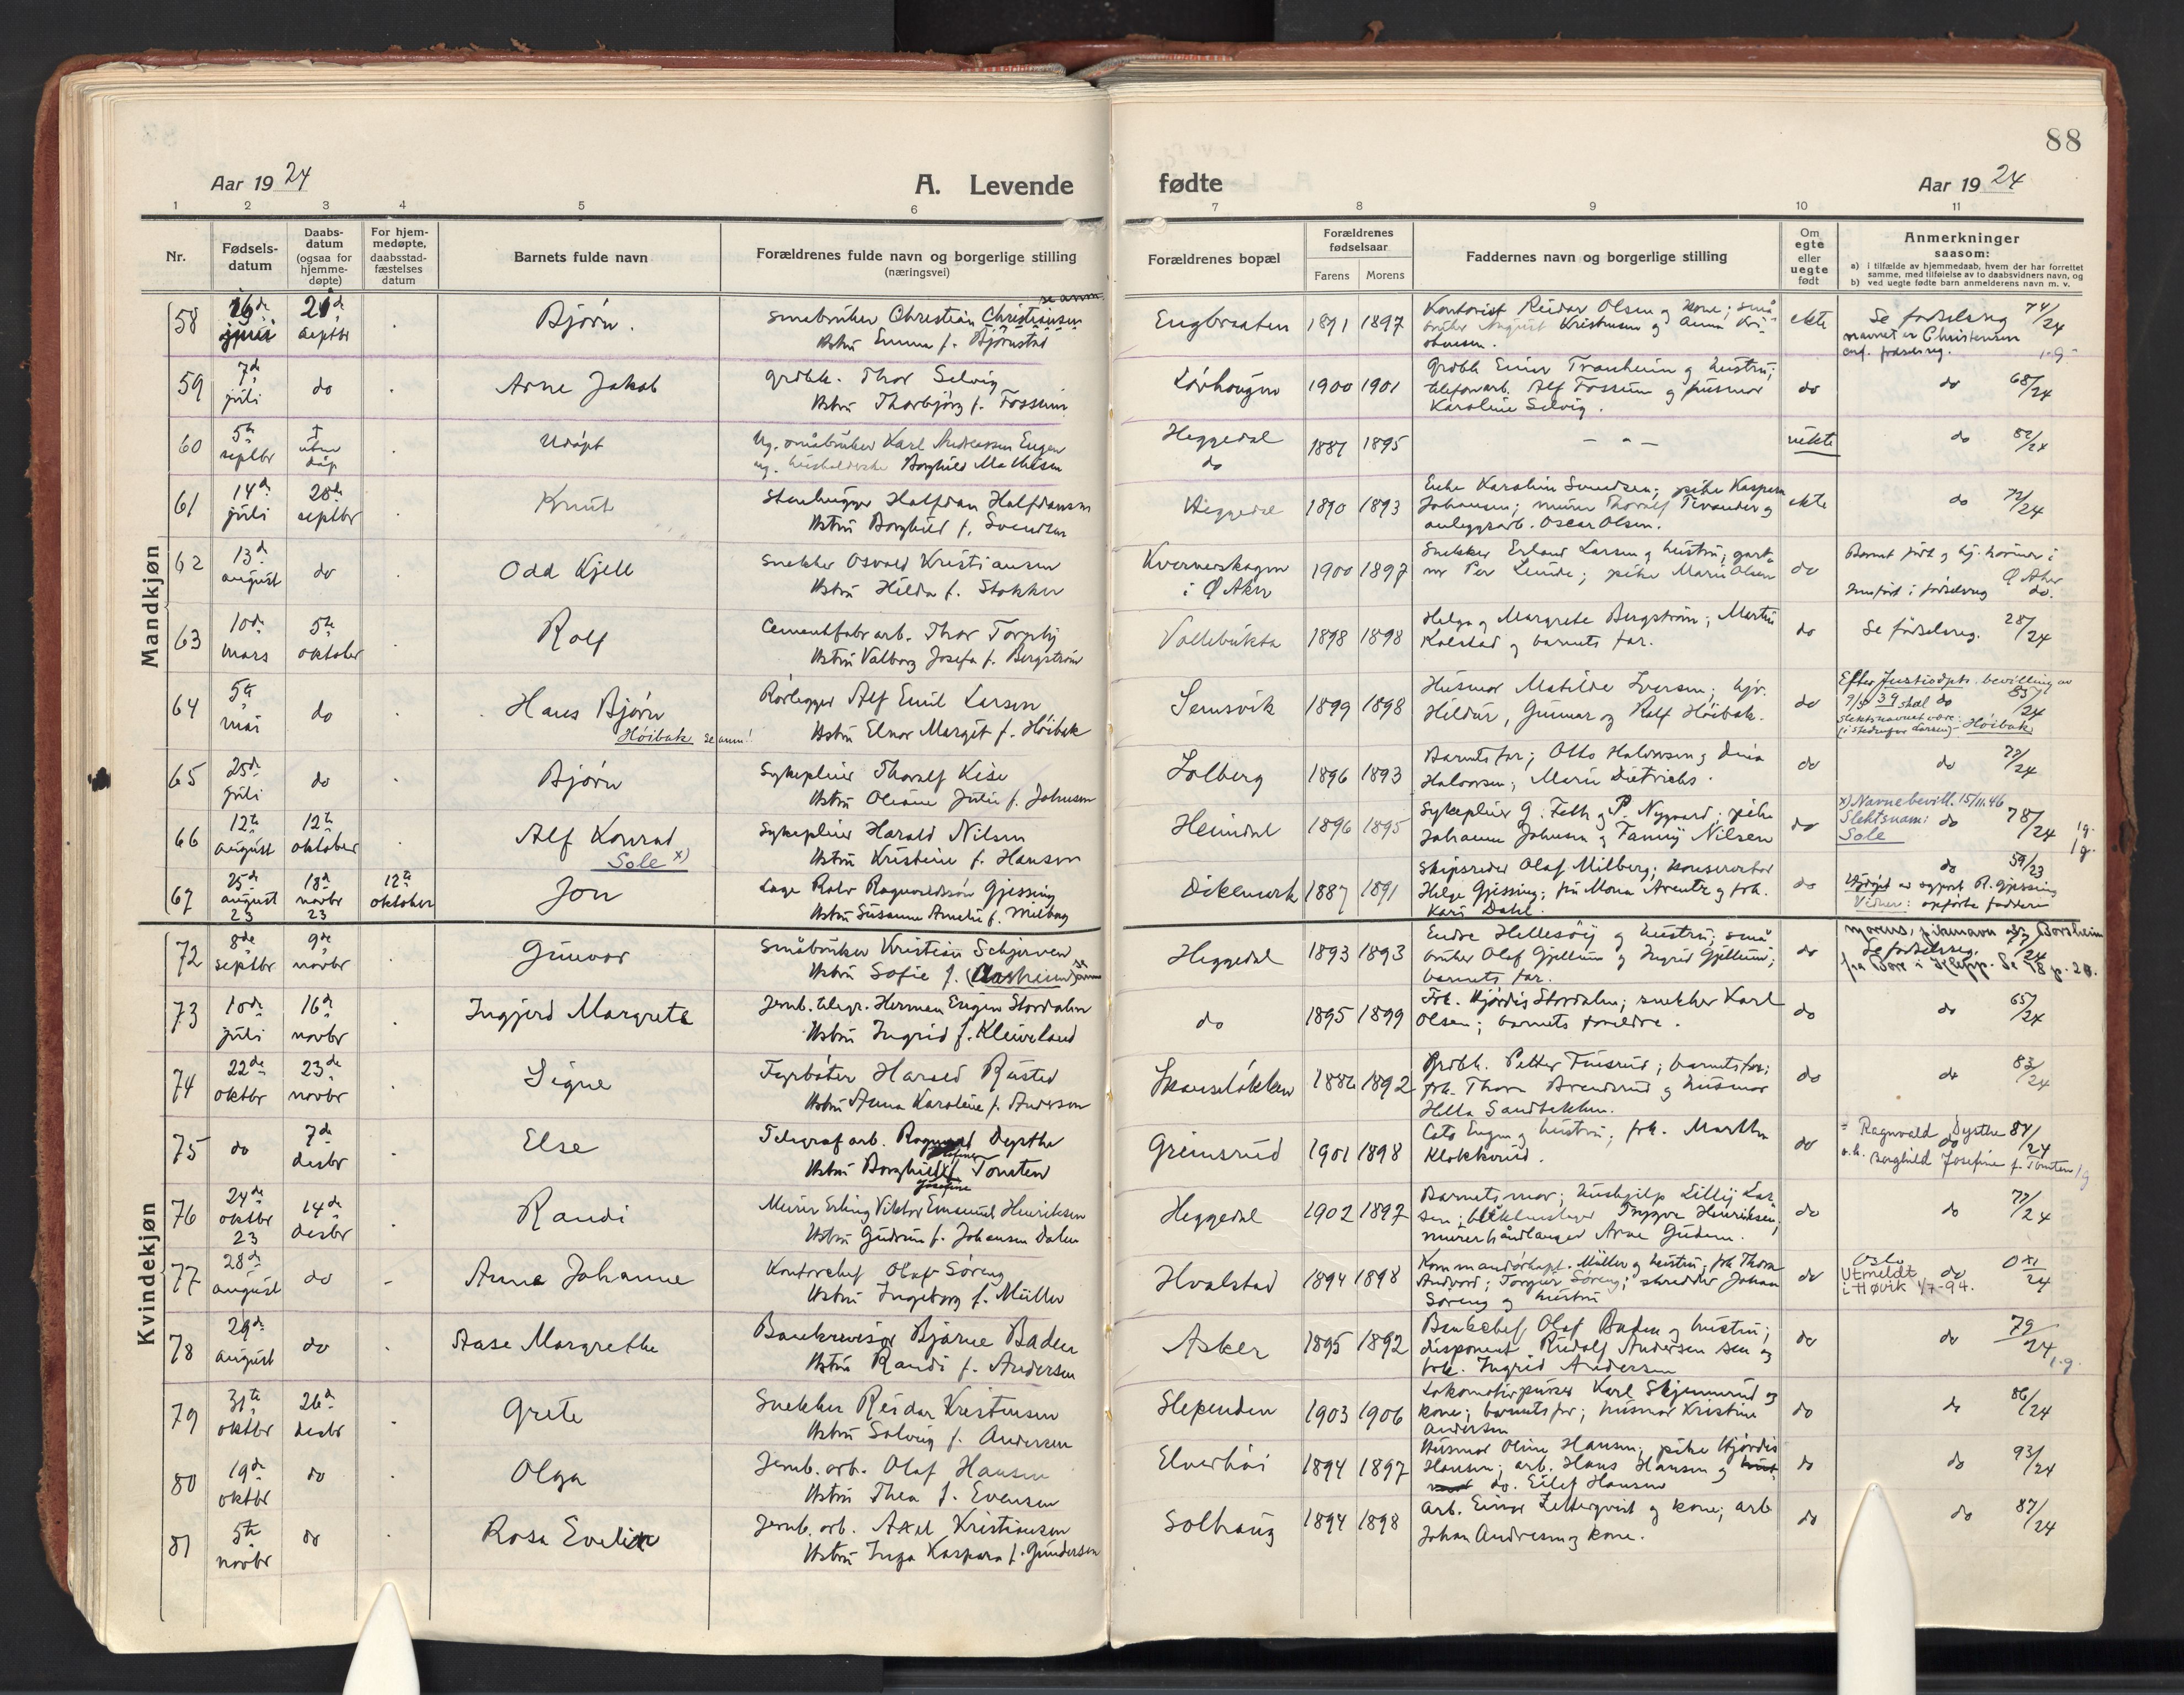 88
Aar 1924
A. Levende
fødte
Aar 1924
1 2 3 4 5 6 7 8 9 10 11
Nr.
Fødsels-
datum
Daabs-
datum
(ogsaa for
hjemme-
døpte)
For hjem-
medøpte,
daabsstad-
fæstelses
datum
Barnets fulde navn
Forældrenes fulde navn og borgerlige stilling
(næringsvei)
Forældrenes bopæl
Forældrenes
fødselsaar
Farens Morens
Faddernes navn og borgerlige stilling
Om
egte
eller
uegte
født
Anmerkninger
saasom:
a) i tilfælde av hjemmedaab, hvem der har forrettet
samme, med tilføielse av to daabsvidners navn, og
b) ved uegte fødte barn anmelderens navn m. v.
Mandkjøn
58 juni 21de septbr Bjørn. Christian Christiansen se anm.
Hstru Emma f. Bjørnstad
Engbraaten 1891 1897 Kontorist Reidar Olsen og kone; små-
bruker August Kristensen og Anna
ekte Se fødselsreg 74/24
navnet er Christensen
59 7de juli do Arne Jakob grdbk. Thor Selvig
Hstru Thorbjørg f. Fossum
1900 1901 Grdbk. Einar Tranheim og hustru;
telefonarb. Alf Fossum og husmor
Karoline Selvig.
do do 68/24
60 5te septbr † uten dåp Udøpt Ug. småbruker Karl Andreassen Engen
ug. husholderske Borghild Mathisen
Heggedal
do
1887 1895 uekte do 82/24
61 14de juli 28de septbr Knut Stenhugger Halfdan Halfdansen
Hstru Borghild f. Svendsen
Heggedal 1890 1893 Enke Karoline Svendsen; pike Kaspara
Johansen; murer Thoralf Tivander og
anleggsarb. Oscar Olsen.
ekte do 72/24
62 13de august do Odd Kjell Snekker Osvald Kristiansen
Hstru Hilda f. Stokker
i Ø Aker
1900 1897 Snekker Erland Larsen og hustru; gart-
ner Per Lunde; pike Marie Olsen
do Barnet født og hj. hørende i
Ø Aker
Innført i fødselsreg do.
63 10de mars 5te oktober Rolf Cementfabr.arb. Thor Torpby
Hstru Valborg Josefa f. Bergstrøm
Vollebukta 1898 1898 Helga og Margrete Bergstrøm; Martin
Kolstad og barnets far.
do Se fødselsreg. 28/24
64 5te mai do Hans Bjørn
Høibak se anm!
Rørlegger Alf Emil Larsen
Hstru Elnor Margit f. Høibak
Semsvik 1899 1898 Husmor Matilde Iversen; hjv.
Hildur, Gunnar og Rolf Høibak.
do Efter Justisdpts. bevilling av
9/5 39 skal do 85/24
slektsnavnet være: Høibak
(i stedenfor Larsen)
65 25de juli do Bjørn Sykepleier Thoralf Kise
Hstru Oliane Julie f. Johnsen
Solberg 1896 1893 Barnets far; Otto Halvorsen og Dina
Halvorsen; Marie Dietrichs.
do do 77/24
66 12te august 12te oktober Alf Konrad
Sole x)
Sykepleier Harald Nilsen
Hstru Kristine f. Hansen
Heimdal 1896 1895 Sykepleier G. Feth og P. Nygaard; pike
Johanne Johnsen og Fanny Nilsen
do x) Navnebevill. 15/11.46
Slektsnam: do 78/24
Sole
67 25de august 23 18de novbr 23 12te oktober Jon Læge Rolv Ragnvaldssøn Gjessing
Hstru Susanne Amalie f. Milberg
Dikemark 1887 1891 Skipsreder Olaf Milberg; konservator
Helge Gjessing; fru Mona Arentz og frk.
Kari Dahl.
do do 59/23
Hjdøpt av sogneprest R. Gjessing
Vidner: opførte faddere
Kvindekjøn
72 8de septbr 9de novbr Gunvor Småbruker Kristian Schjerven
Hstru Sofie f. Aasheim
Heggedal 1893 1893 Endre Hellesøy og hustru; små-
bruker Olaf Gjellum og Ingrid Gjellum;
barnets far.
do Morens pikenavn Borsheim
Se fødselsreg. /24
fra Bore i Klepp.
73 10de juli 16de novbr Ingjerd Margrete Jernb. telegr. Herman Eugen Stordalen
Hstru Ingrid f. Kleiveland
do 1895 1899 Frk. Hjørdis Stordalen; snekker Karl
Olsen; barnets foreldre.
do do 65/24
74 22de oktbr 23de novbr Signe Fyrbøter Harald Rusted
Hstru Anna Karoline f. Andersen
1886 1892 Grdbk. Petter Fusrud; barnets far;
frk. Thora Brendsrud og husmor
Hella Sandbekken.
do do 83/24
75 do 7de desbr Else Telegrafarb. Ragnvald Dysthe
Hstru Borghild Josefine f. Tomten
Grimsrud 1901 1898 Cato Engen og hustru; frk. Martha
Klokkerud.
do Ragnvald Dysthe 84/24
do
Borghild Josefine f. Tomten
76 24de oktbr 23 14de desbr Randi Murer Erling Viktor Emanuel Henriksen
Hstru Gudrun f. Johansen Dalen
Heggedal 1902 1897 Barnets mor; hushjelp Lilly Lar-
sen; blikkenslager Trygve Henriksen;
murerhåndlanger Arne Gudem.
do do 77/24
77 28de august do Anna Johanne Kontorchef Olaf Søreng
Hstru Ingeborg f. Müller
Hvalstad 1894 1898 Kommandørkapt. Müller og hustru; frk Thora
Andvord; Torgun Søreng; skredder Johan
Søreng og hustru
do Oslo
Utmeldt do /24
i Høvik 1/7-94.
78 29de august do Aase Margrethe Bankrevisor Bjarne Baden
Hstru Randi f. Andersen
Asker 1895 1892 Bankchef Olaf Baden og hustru;
disponent Rudolf Andersen sen og
frk. Ingrid Andersen
do do 79/24
79 31te oktbr 26de desbr Grete Snekker Reidar Kristensen
Hstru Solveig f. Andersen
Slependen 1903 1906 Lokomotivpusser Karl Skjennerud og
kone; barnets far; husmor Kristine
Andersen
do do 86/24
80 19de oktbr do Olga Jernb. arb. Olaf Hansen
Hstru Thea f. Evensen
Elverhøi 1894 1897 Husmor Oline Hansen; pike Hjørdis
Hansen; arb. Hans Hansen og
do. Eilef Hansen
do do 93/24
81 5te novbr do Rosa Evelin Jernb. arb. Axel Kristiansen
Hstru Inga Kaspara f. Gundersen
Solhaug 1894 1898 Arb. Einar Zetterqvist og kone; arb
Johan Andresen og kone.
do do 87/24